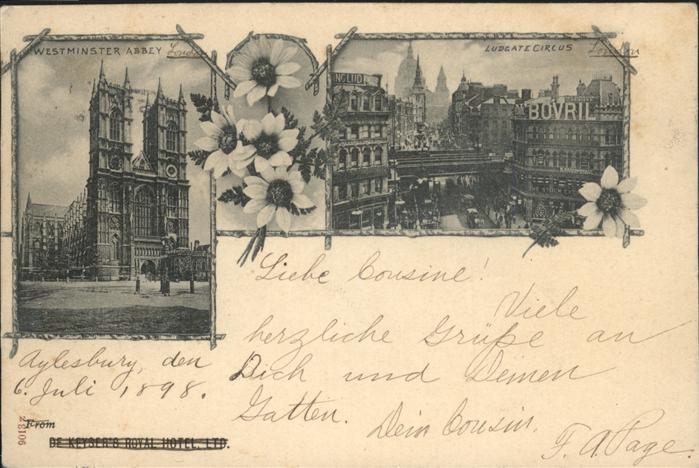 WESTMINSTER ABBEY London
LUDGATE CIRCUS London
BOVRIL
Liebe Cousine!
Viele
herzliche Grüße an
Dich und Deinen
Gatten. Dein Cousin.
F. A. Page.
Aylesbury, den
6. Juli 1898.
From
DE KEYSER'S ROYAL HOTEL, LTD.
28106